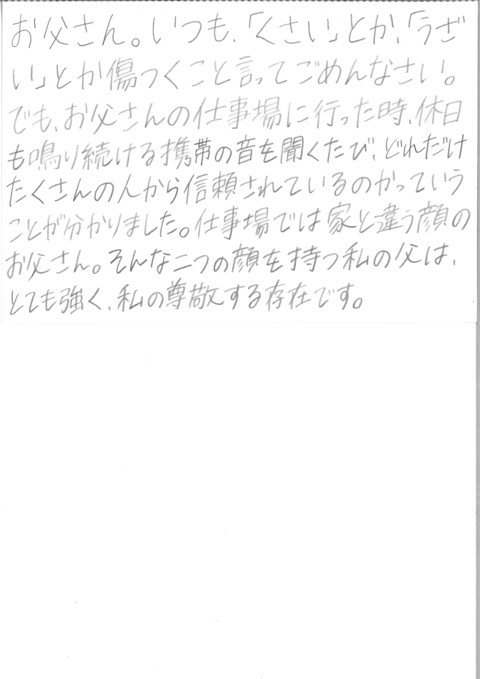 お父さん。いつも、「くさい」とか、「うざ
い」とか傷つくこと言ってごめんなさい。
でも、お父さんの仕事場に行った時、休日
も鳴り続ける携帯の音を聞くたび、どれだけ
たくさんの人から信頼されているのかっていう
ことが分かりました。仕事場では家と違う顔の
お父さん。そんな二つの顔を持つ私の父は、
とても強く、私の尊敬する存在です。